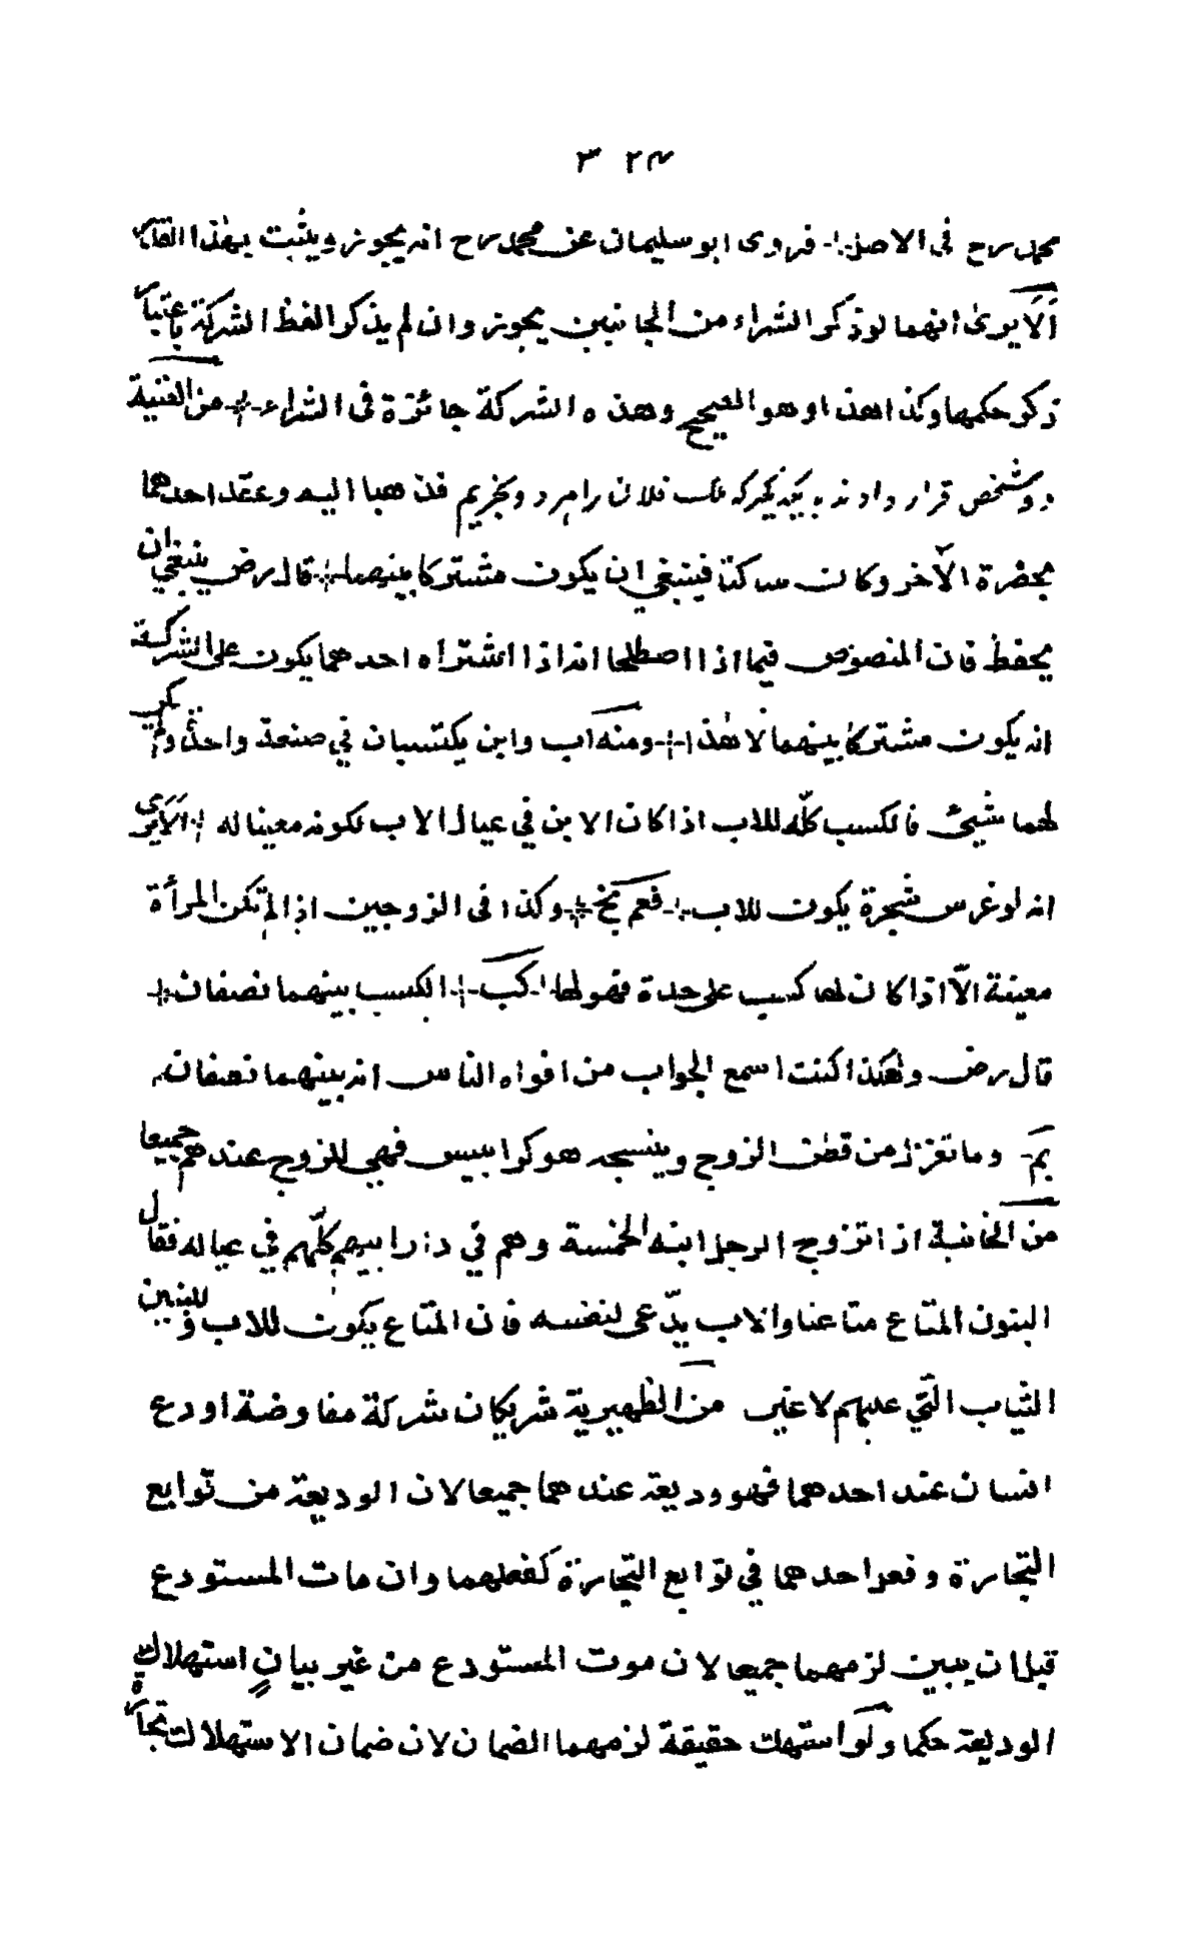 ٣٢٣
محمد رح فى الاصل فروى ابو سليمان عن محمد رح انه يجوز ويثبت بهذا القدر
ألا يرى انهما لو ذكرا الشراء من الجانبين يجوز وان لم يذكرا لفظ الشركة باعتبار
ذكر حكمها وكذا هذا وهو الصحيح وهذه الشركة جائزة فى الشراء من القنية
دو شخص قرار دادند ملك فلان را وبخريم فذهبا اليه وعقد احدهما
بحضرة الآخر وكان ساكتا فينبغي ان يكون مشتركا بينهما قال رض ينبغي ان
يحفظ فان المنصوص فيما اذا اصطلحا انه اذا اشتراه احدهما يكون على الشركة
انه يكون مشتركا بينهما لا هذا ومنه اب وابن يكتسبان في صنعة واحدة ولم يكن
لهما شيئ فالكسب كلّه للاب اذا كان الابن في عيال الاب لكونه معينا له ألا يرى
انه لو غرس شجرة يكون للاب فعم بخ وكذا فى الزوجين اذا لم تكن المرأة
معينة الّا اذا كان لها كسب على حدة فهو لها كب الكسب بينهما نصفان
قال رض وهكذا كنت اسمع الجواب من افواه الناس انه بينهما نصفان
بم وما تغزل من قطن الزوج وينسجه هو كرابيس فهي للزوج عندهم جميعا
من الخانية اذا تزوج الرجل ابنه الخمسة وهم في دار ابيهم كلّهم في عياله فقال
البنون المتاع متاعنا والاب يدّعى لنفسه فان المتاع يكون للاب وللبنين
الثياب التّي عليهم لا غير من الظهيرية شريكان شركة مفاوضة اودع
انسان عند احدهما فهو وديعة عندهما جميعا لان الوديعة من توابع
التجارة وفعل احدهما في توابع التجارة كفعلهما وان مات المستودع
قبل ان يبين لزمهما جميعا لان موت المستودع من غير بيانٍ استهلاك
الوديعة حكما ولو استهلك حقيقة لزمهما الضمان لان ضمان الاستهلاك تجارة